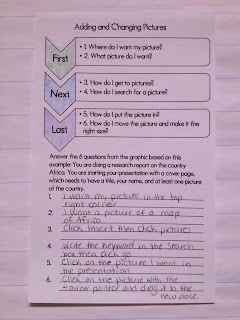 Adding and Changing Pictures
First
• 1. Where do I want my picture?
• 2. What picture do I want?
Next
• 3. How do I get to pictures?
• 4. How do I search for a picture?
Last
• 5. How do I put the picture in?
• 6. How do I move the picture and make it the
right size?
Answer the 6 questions from the graphic based on this
example: You are doing a research report on the country
Africa. You are starting your presentation with a cover page,
which needs to have a title, your name, and at least one picture
of the country.
1. I want my picture in the top
right corner
2. I want a picture of a map
of Africa.
3. Click Insert then click pictures
4. write the keyword in the search
box then click go
5. Click on the picture I want in
the presentation
6. Click on the picture with the
4 arrow pointer and drag it to the
new place.